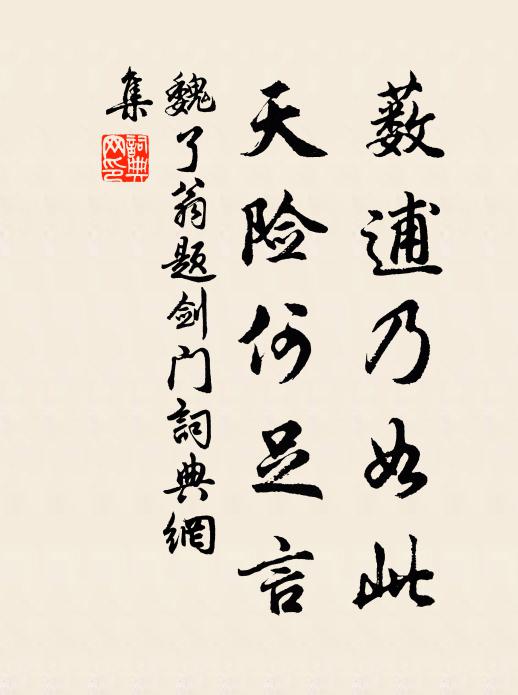 薮逋乃如此
天险何足言
魏了翁题剑门詞典網
集
詞典
网印